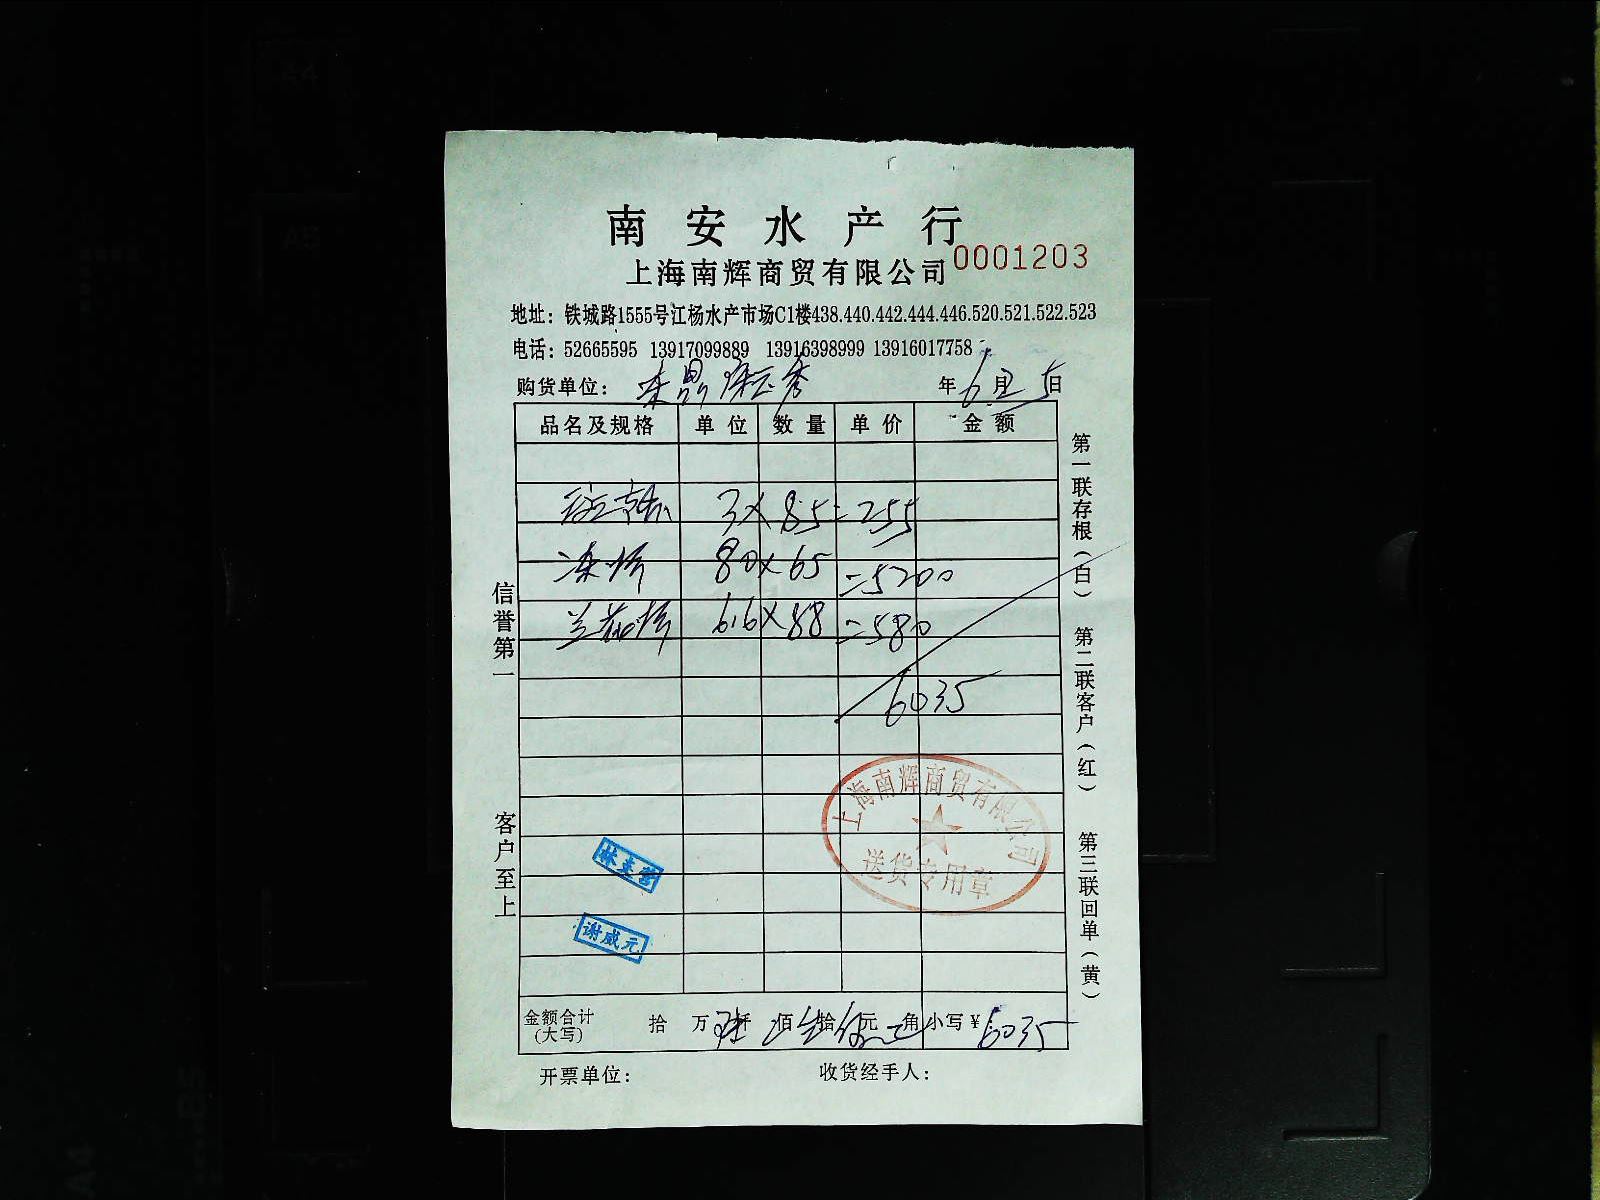 南安水产行
上海南辉商贸有限公司 0001203
地址：铁城路1555号江杨水产市场C1楼438.440.442.444.446.520.521.522.523
电话：52665595 13917099889 13916398999 13916017758
购货单位： 年6月5日
品名及规格 单位 数量 单价 金额
3×85=255
冻虾 80×65=5200
兰花虾 6.6×88=580
6035
信誉第一
客户至上
第一联存根（白） 第二联客户（红） 第三联回单（黄）
上海南辉商贸有限公司
送货专用章
林圭营
谢威元
金额合计（大写） 拾 万 仟 佰 拾 元 角 小写¥：6035
开票单位： 收货经手人：